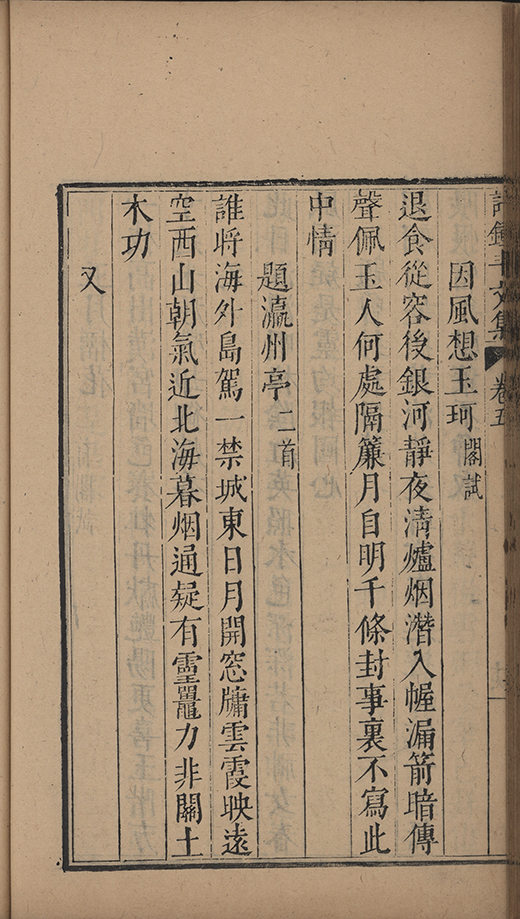 許鍾斗文集 卷五
因風想玉珂 閣試
退食從容後銀河靜夜清爐烟潛入幄漏箭暗傳
聲佩玉人何處隔簾月自明千條封事裏不寫此
中情
題瀛州亭 二首
誰將海外島駕一禁城東日月開窓牖雲霞映遠
空西山朝氣近北海暮烟通疑有靈鼉力非關土
木功
又